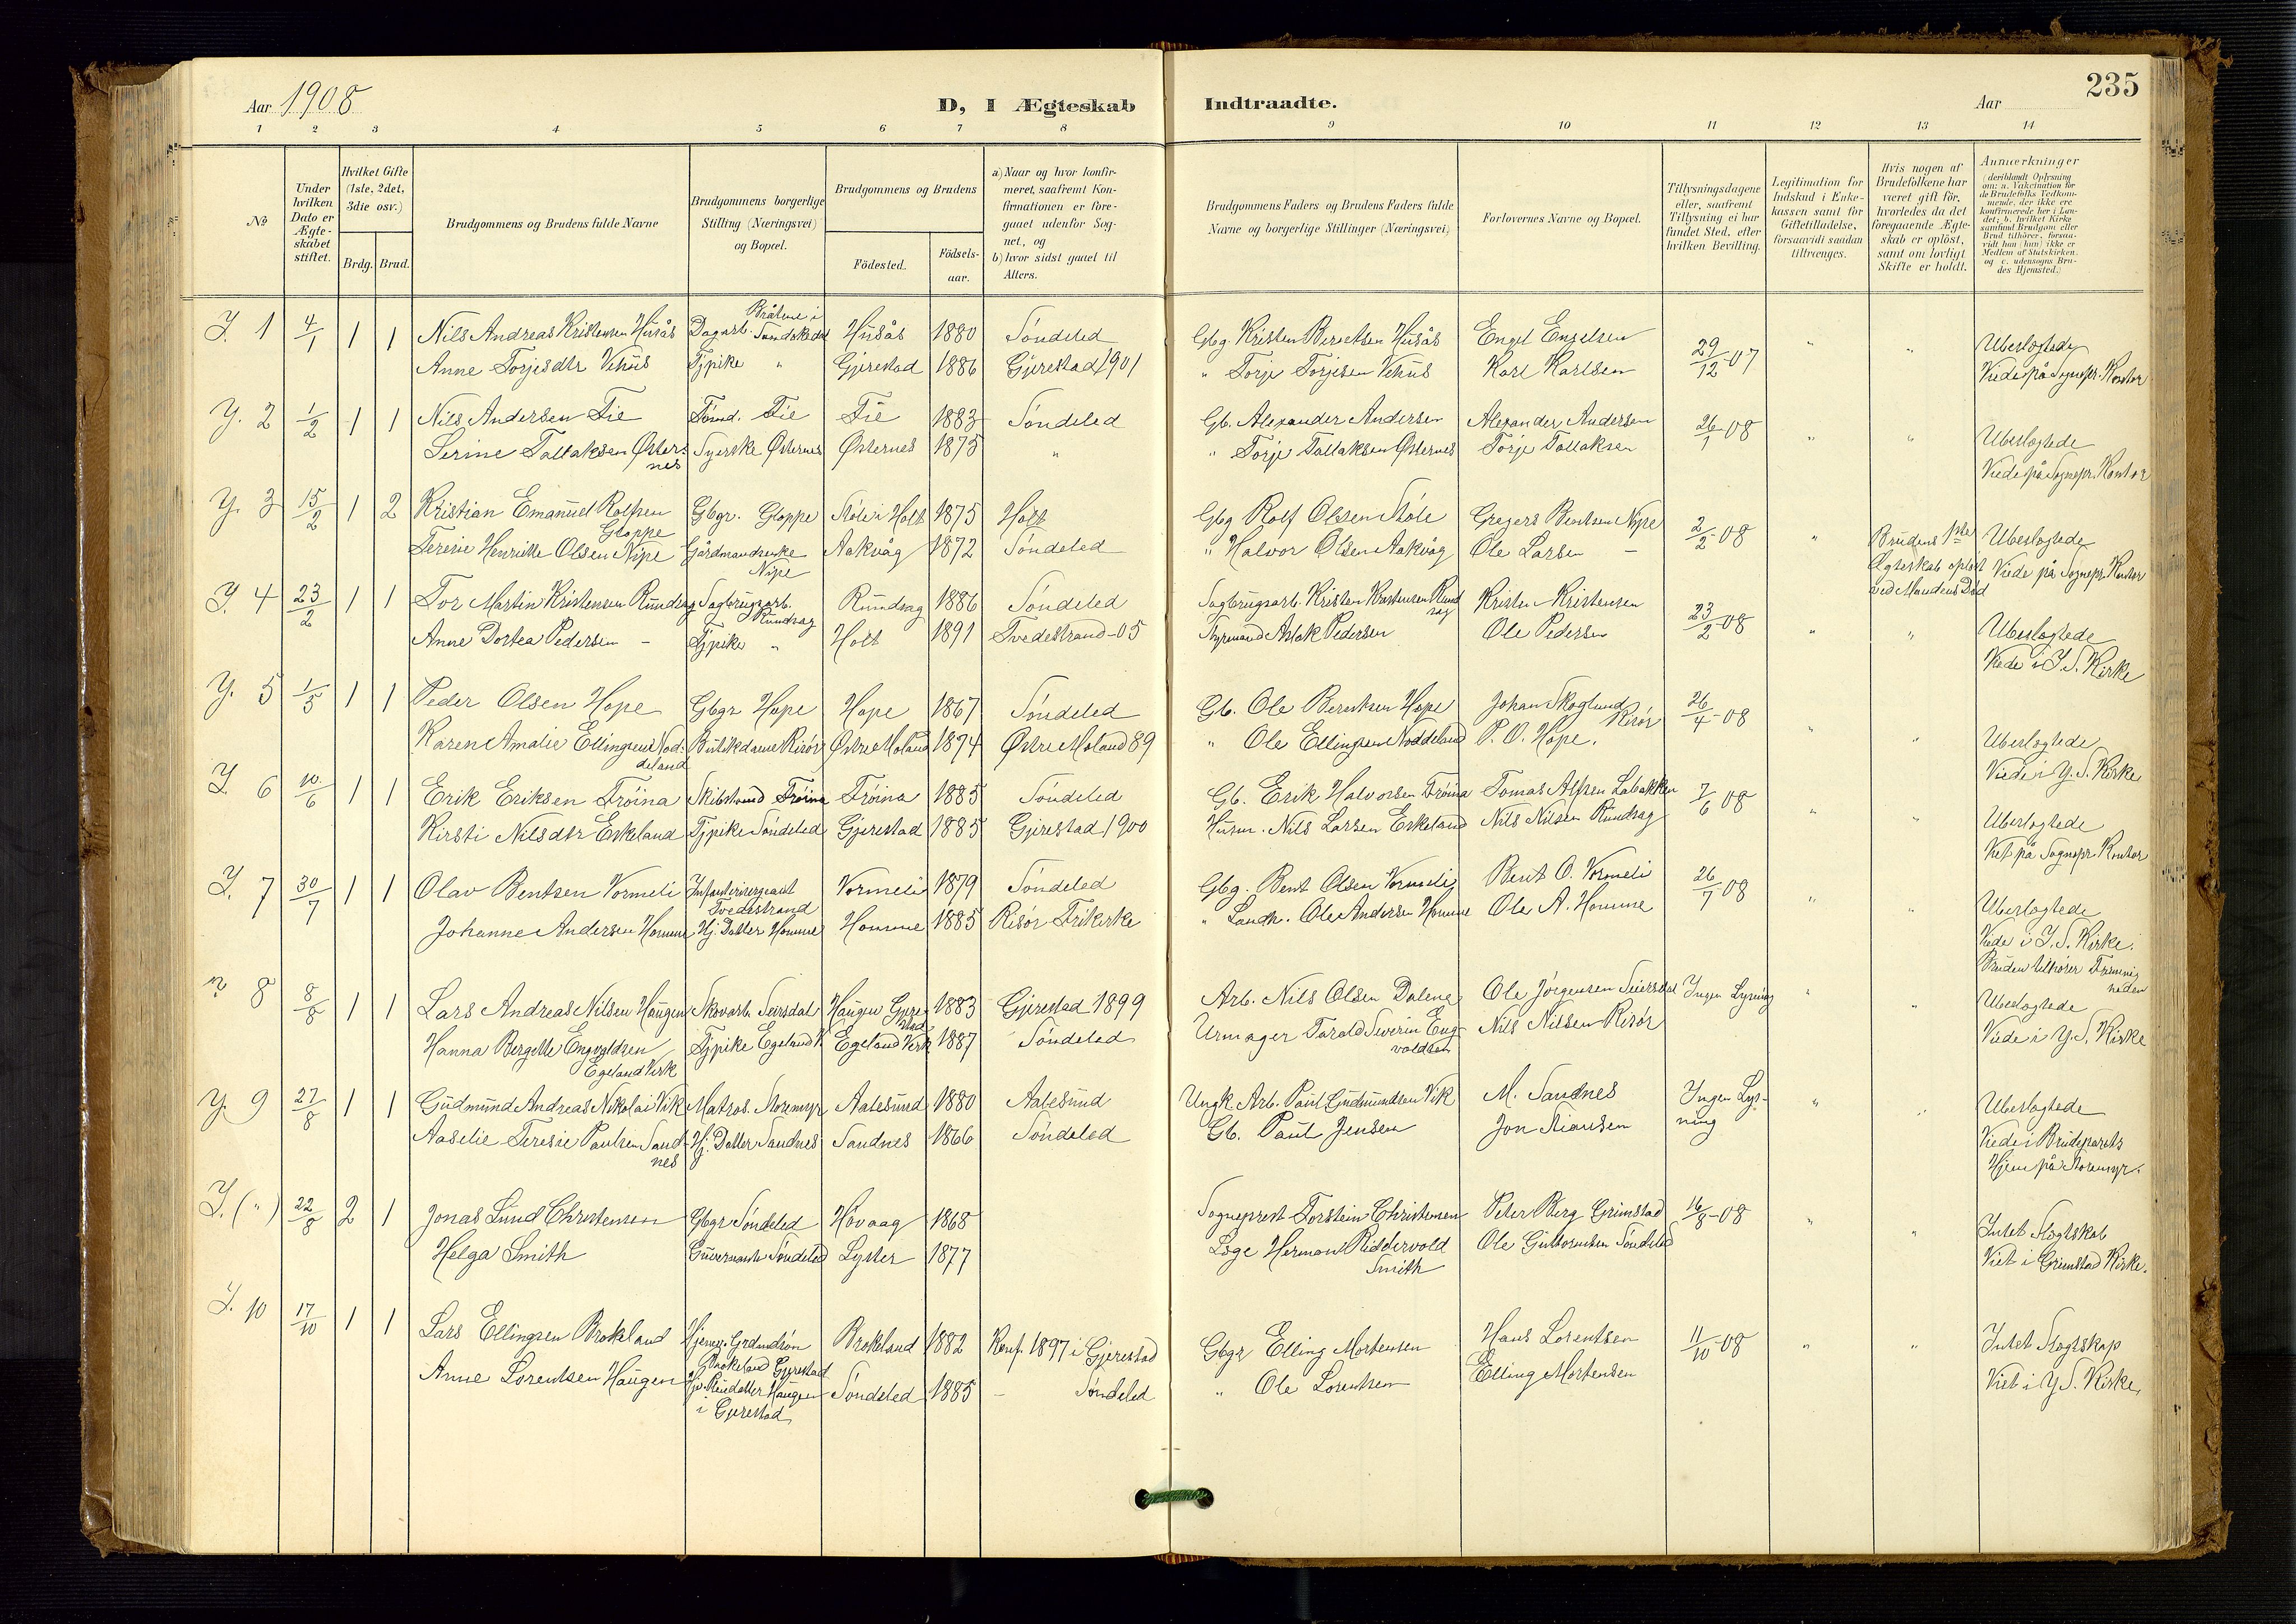 235
Aar 1908 D, I Ægteskab Indtraadte. Aar
1 2 3 4 5 6 7 8 9 10 11 12 13 14
№
Under hvilken Dato er Ægteskabet stiftet.
Hvilket Gifte (1ste, 2det, 3die osv.)
Brdg. Brud.
Brudgommens og Brudens fulde Navne
Brudgommens borgerlige Stilling (Næringsvei) og Bopæl.
Brudgommens og Brudens
Fødested.
Fødselsaar.
a) Naar og hvor konfirmeret, saafremt Konfirmationen er foregaaet udenfor Sognet, og
b) hvor sidst gaaet til Alters.
Brudgommens Faders og Brudens Faders fulde Navne og borgerlige Stillinger (Næringsvei)
Forlovernes Navne og Bopæl.
Tillysningsdagene eller, saafremt Tillysning ei har fundet Sted, efter hvilken Bevilling.
Legitimation for Indskud i Enkekassen samt for Giftetilladelse, forsaavidt saadan tiltrænges.
Hvis nogen af Brudefolkene har været gift før, hvorledes da det foregaaende Ægteskab er opløst, samt om lovligt Skifte er holdt.
Anmærkninger (deriblandt Oplysning om: a. Vakcination for de Brudefolks Vedkommende, der ikke ere konfirmerede her i Landet; b. hvilket Kirkesamfund Brudgom eller Brud tilhører, forsaavidt han (hun) ikke er Medlem af Statskirken. og c. udensogns Brudes Hjemsted.)
I. 1 4/1 1 1 Nils Andreas Kristensen Husås Dagarb. Bråtene i Sundskedet Husås 1880 Søndeled Gbg Kristen Berntsen Husås Engel Engelsen 29/12 07 " " Ubeslægtede
Anne Torjesdtr Vehus Tjpike " Gjerestad 1886 Gjerestad 1901 " Torje Torjesen Vehus Karl Karlsen Viede på Sognepr. Kontor
Y. 2 1/2 1 1 Nils Andersen Fie Tømd. Fie Fie 1883 Søndeled Gb. Alexander Andersen Alexander Andersen 26/1 08 " " Ubeslægtede
Serine Tallaksen Østernes Syerske Østernes Østernes 1875 " " Torje Tallaksen Østernes Torje Tallaksen Viede på Sognepr. Kontor
Y. 3 15/2 1 2 Kristian Emanuel Rolfsen Gloppe Gbgr. Gloppe Støle i Holt 1875 Holt Gbg Rolf Olsen Støle Gregers Bentsen Nipe 2/2 08 " Brudens 1ste Ægteskab opløst ved Mandens Død Ubeslægtede
Teresie Henrikke Olsen Nipe Gårdmandsenke Nipe Aakvåg 1872 Søndeled " Halvor Olsen Aakvåg Ole Larsen - Viede på Sognepr. Kontor
I. 4 23/2 1 1 Tor Martin Kristensen Rundsag Sagbrugsarb. Rundsag Rundsag 1886 Søndeled Sagbrugsarb. Kristen Karstensen Rundsag Kristen Kristensen 23/2 08 " " Ubeslægtede
Anne Dortea Pedersen - Tjpike " Holt 1891 Tvedestrand -05 Styrmand Aslak Pedersen Ole Pedersen Viede i I. S. Kirke
Y. 5 1/5 1 1 Peder Olsen Hope Gbgr Hope Hope 1867 Søndeled Gb. Ole Berentsen Hope Johan Skoglund Risør 26/4 - 08 " " Ubeslægtede
Karen Amalie Ellingsen Noddeland Butikdame Risør Østre Moland 1874 Østre Moland 89 " Ole Ellingsen Noddeland P. O. Hope. Viede i Y. S. Kirke
I. 6 10/6 1 1 Erik Eriksen Trøina Skibstømd Trøina Trøina 1885 Søndeled Gb. Erik Halvorsen Trøina Tomas Alfsen Labakken 7/6 08 " " Ubeslægtede
Kirsti Nilsdtr Eskeland Tjpike Søndeled Gjerestad 1885 Gjerestad 1900 Husm. Nils Larsen Eskeland Nils Nilsen Rundsag Viet på Sognepr. Kontor
I. 7 30/7 1 1 Olav Bentsen Vormeli Infanterisergeant Tvedestrand Vormeli 1879 Søndeled Gbg. Bent Olsen Vormeli Bent O. Vormeli 26/7 08 " " Ubeslægtede
Johanne Andersen Homme Hj. Datter Homme Homme 1885 Risør Frikirke " Landh. Ole Andersen Homme Ole A. Homme Viede i I. S. Kirke.
Bruden tilhører Frimenigheden
8 8/8 1 1 Lars Andreas Nilsen Haugen Skovarb. Seirsdal Haugen Gjerestad 1883 Gjerestad 1899 Arb. Nils Olsen Dalene Ole Jørgensen Seiersdal Ingen Lysning " " Ubeslægtede
Hanna Bergette Engvoldsen Egeland Verk Tjpike Egeland V. Egeland Verk 1887 Søndeled Urmager Tarald Severin Engvoldsen Nils Nilsen Risør Viede i Y. S. Kirke
Y. 9 27/8 1 1 Gudmund Andreas Nikolai Vik Matros. Storemyr Aalesund 1880 Aalesund Ungk Arb. Paul Gudmundsen Vik M. Sandnes Ingen Lysning " " Ubeslægtede
Aaselie Teresie Paulsen Sandnes Hj. Datter Sandnes Sandnes 1866 Søndeled Gb. Paul Jensen Jon Stiansen Viede i Brudeparets
Hjem på Storemyr.
I. (") 22/8 2 1 Jonas Lund Christensen Gbgr Søndeled Høvaag 1868 Sogneprest Torstein Christensen Peter Berg Grimstad 16/8 - 08 " " Intet Slægtskab
Helga Smith Guvernante Søndeled Lyster 1877 Læge Herman Riddervold Smith Ole Guttormsen Søndeled Viet i Grimstad Kirke.
I. 10 17/10 1 1 Lars Ellingsen Brokeland Hjemv. Grdmdsøn Brokeland Gjerestad Brokeland 1882 Konf. 1897 i Gjerestad Gbgr Elling Mortensen Hans Lorentsen 11/10 - 08 " " Intet Slægtskap
Anne Lorentsen Haugen Haugen i Gjerestad Søndeled 1885 - Søndeled " Ole Lorentsen Elling Mortensen Viet i Y S. Kirke.